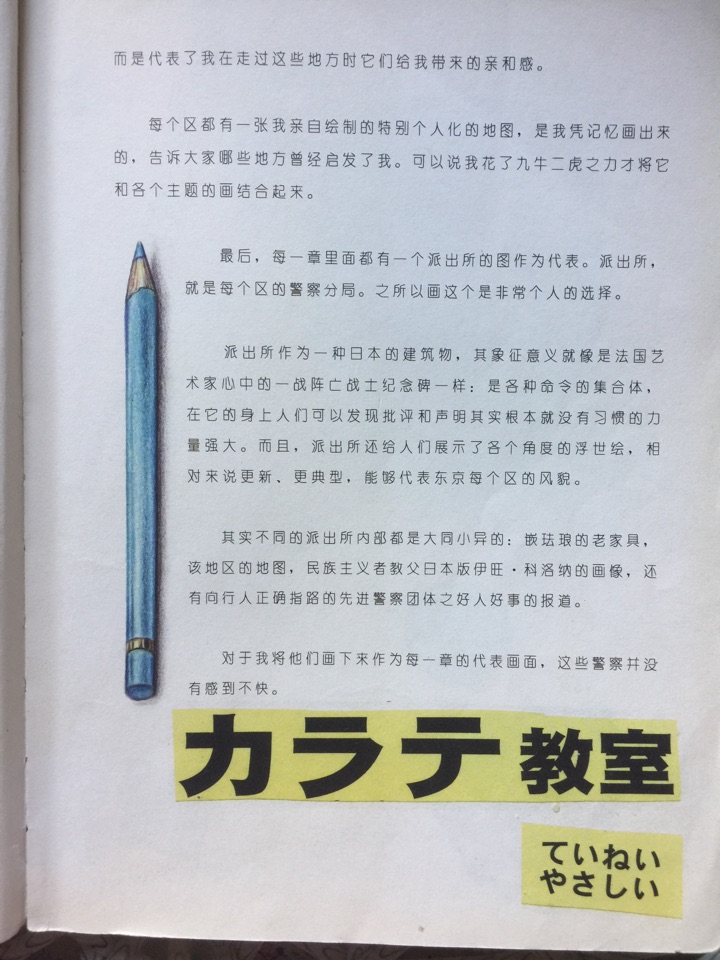 而是代表了我在走过这些地方时它们给我带来的亲和感。
每个区都有一张我亲自绘制的特别个人化的地图，是我凭记忆画出来
的，告诉大家哪些地方曾经启发了我。可以说我花了九牛二虎之力才将它
和各个主题的画结合起来。
最后，每一章里面都有一个派出所的图作为代表。派出所，
就是每个区的警察分局。之所以画这个是非常个人的选择。
派出所作为一种日本的建筑物，其象征意义就像是法国艺
术家心中的一战阵亡战士纪念碑一样：是各种命令的集合体，
在它的身上人们可以发现批评和声明其实根本就没有习惯的力
量强大。而且，派出所还给人们展示了各个角度的浮世绘，相
对来说更新、更典型，能够代表东京每个区的风貌。
其实不同的派出所内部都是大同小异的：嵌珐琅的老家具，
该地区的地图，民族主义者教父日本版伊旺·科洛纳的画像，还
有向行人正确指路的先进警察团体之好人好事的报道。
对于我将他们画下来作为每一章的代表画面，这些警察并没
有感到不快。
カラテ教室
ていねい
やさしい